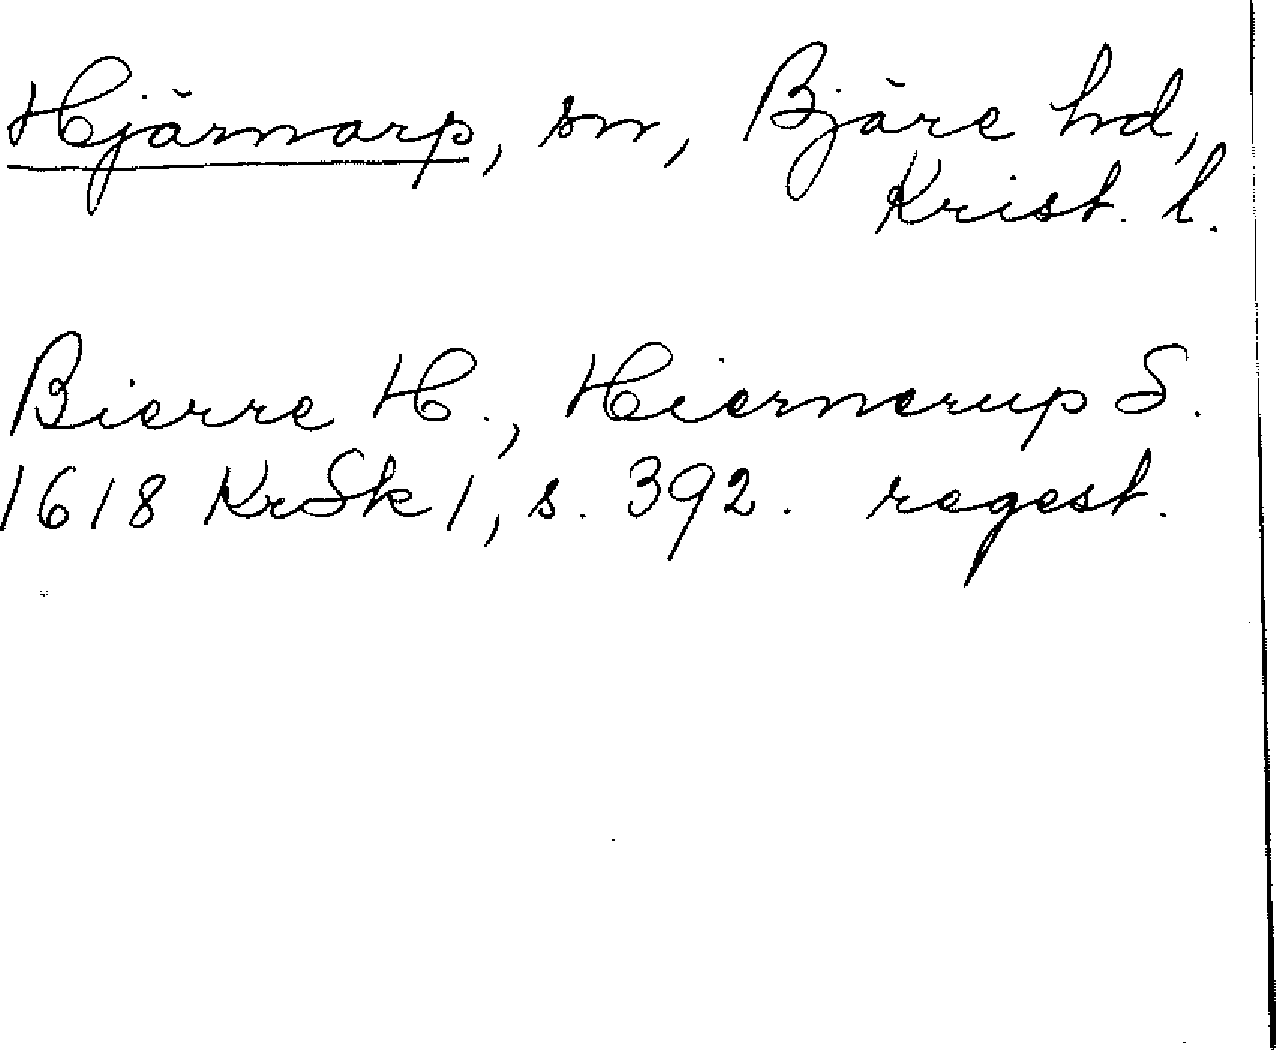 Hjärnarp, sn, Bjäre hd,
Krist. l.
Bierre H., Hiernerup S.
1618 KrSk 1, s. 392. regest.